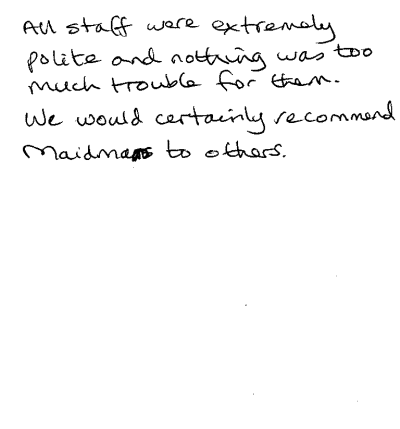 All staff were extremely
polite and nothing was too
much trouble for them.
We would certainly recommend
Maidmans to others.